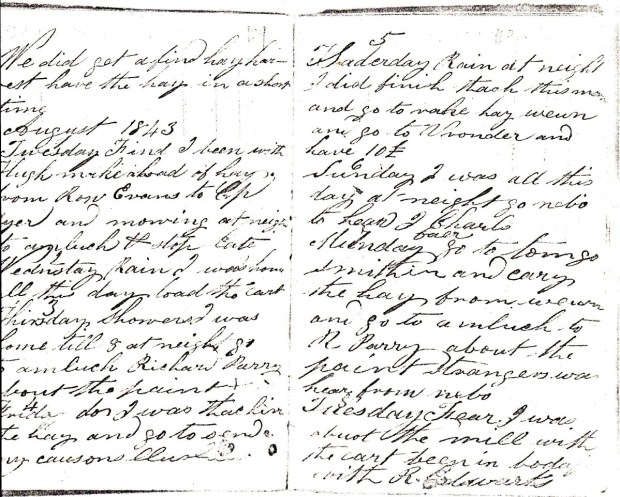 We did get a find hay har-
est have the hay in a short
time
August 1843
Tuesday Find I been with
Hugh make a load of hay
from Row Evans to
and mowing at neigh
to amluch & stop late
Wednstay Rain I was home
all this day load the cart
3
Thirsday Showers I was
home till 8 at neight go
to amluch Richard Parry
about the paint
4
do I was thachin
the hay and go to
causons
5
Saderday Rain at neight
I did finish thach this mor
and go to rake hay weun
and go to Vronder and
have 10£
6
Sunday I was all this
day at neight go nebo
to hear J Charls
faer
Munday go to tomgo
smithin and cary
the hay from weun
and go to amluch to
R Parry about the
paint strangers was
hear from nebo
Tuesday Fear I was
abuot the mill with
the cart been in boda
with R. Edwards